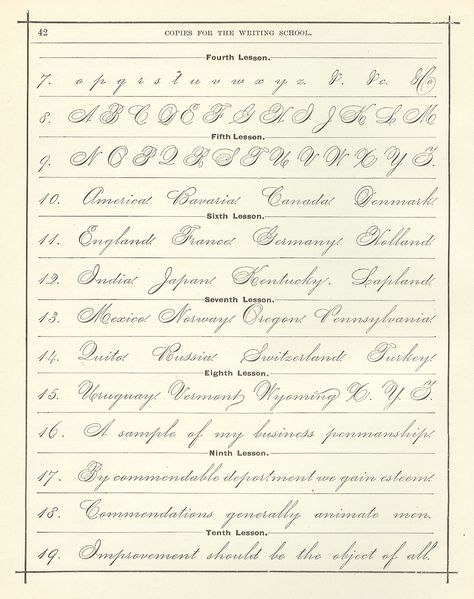 42 COPIES FOR THE WRITING SCHOOL.
Fourth Lesson.
7. o p q r s t u v w x y z. &. &c. &Co
8. A B C D E F G H I J K L M
Fifth Lesson.
9. N O P Q R S T U V W X Y Z.
10. America Bavaria Canada Denmark
Sixth Lesson.
11. England France Germany Holland
12. India Japan Kentucky. Lapland
Seventh Lesson.
13. Mexico Norway Oregon Pennsylvania
14. Quito Russia Switzerland Turkey
Eighth Lesson.
15. Uruguay Vermont Wyoming X. Y. Z.
16. A sample of my business penmanship.
Ninth Lesson.
17. By commendable deportment we gain esteem.
18. Commendations generally animate men.
Tenth Lesson.
19. Improvement should be the object of all.